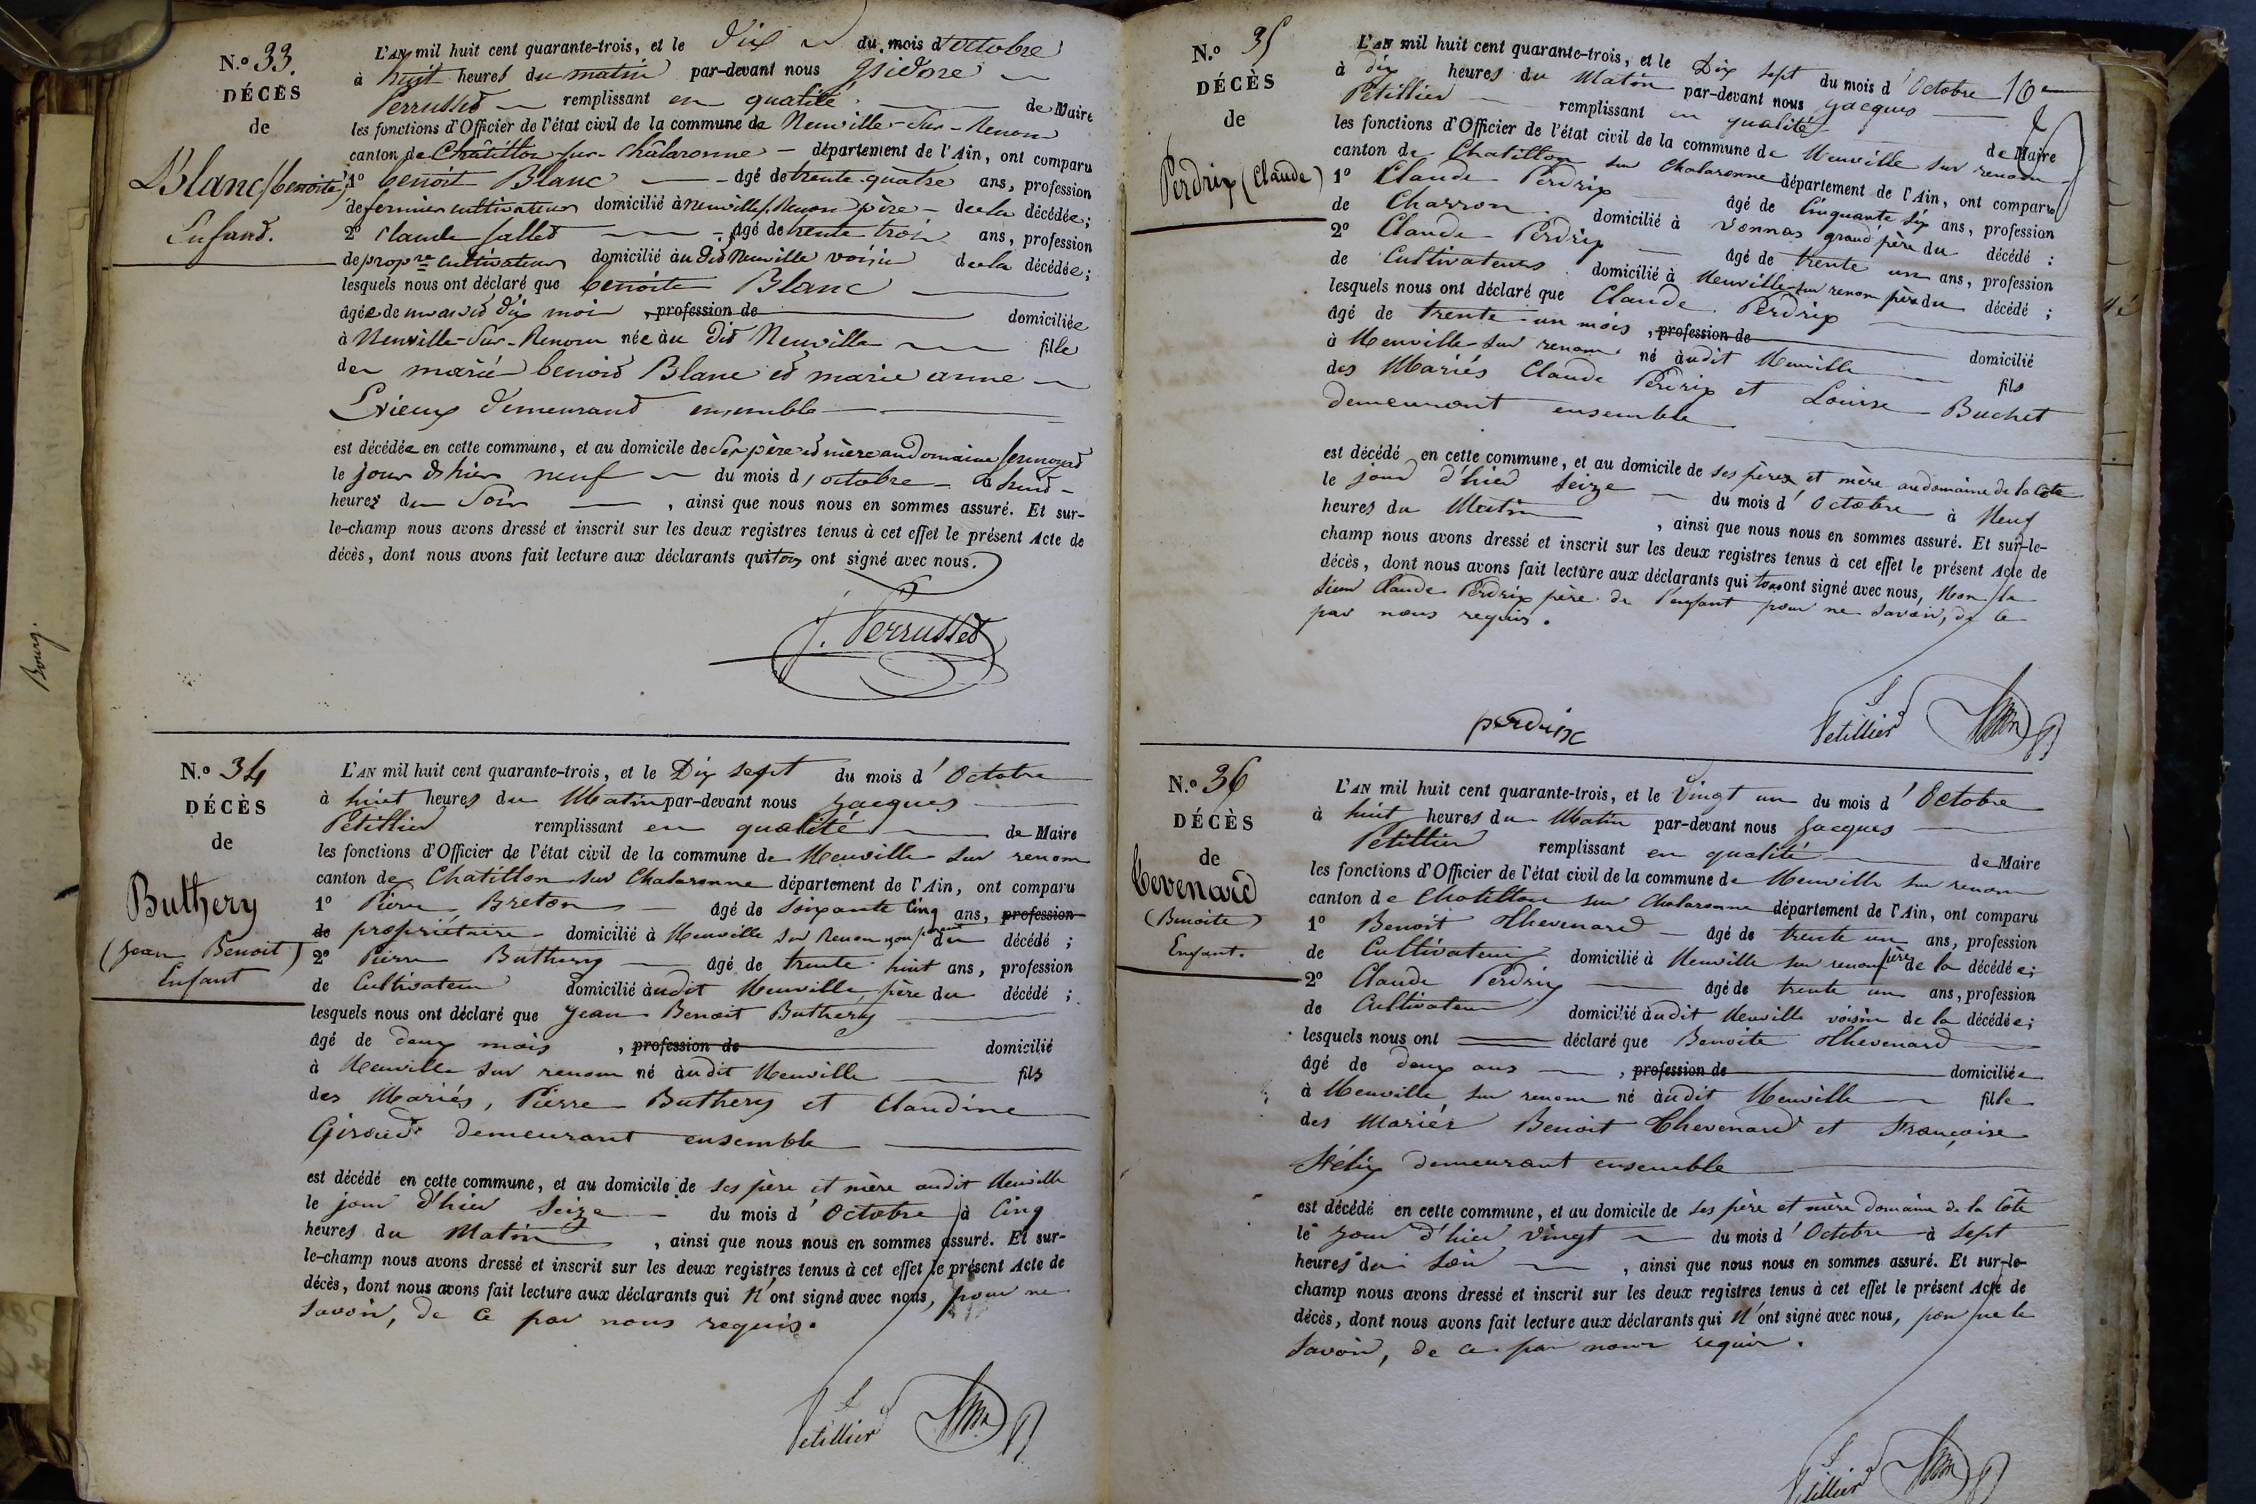 N.º 33.
DÉCÈS
de
Blanc (benoite)
Enfand.
L'AN mil huit cent quarante-trois, et le Dix du mois d'octobre
à huit heures du matin par-devant nous isidore
Perrussed remplissant en qualité de Maire
les fonctions d'Officier de l'état civil de la commune de Neuville-Sur-Renom
canton de Châtillon sur châlaronne département de l'Ain, ont comparu
1º benoit Blanc âgé de trente quatre ans, profession
de fermier cultivateur domicilié à neuville s. Renom père de la décédée;
2º Claude Salled âgé de trente trois ans, profession
de propre cultivateur domicilié au did Neuville voisin de la décédée;
lesquels nous ont déclaré que benoite Blanc
âgée de dix mois , profession de domiciliée
à Neuville-Sur-Renom née au did Neuville fille
des mariés benoid Blanc ed marie anne
demeurand ensemble
est décédée en cette commune, et au domicile de ses père ed mère au Domaine
le jour d'hier neuf du mois d'octobre à huid
heures du Soir , ainsi que nous nous en sommes assuré. Et sur-
le-champ nous avons dressé et inscrit sur les deux registres tenus à cet effet le présent Acte de
décès, dont nous avons fait lecture aux déclarants qui ont signé avec nous.
j. Perrussed
N.º 34
DÉCÈS
de
Buthery
(Jean Benoit)
Enfant
L'AN mil huit cent quarante-trois, et le Dix sept du mois d'Octobre
à huit heures du Matin par-devant nous Jacques
Petillier remplissant en qualité de Maire
les fonctions d'Officier de l'état civil de la commune de Neuville sur renom
canton de Chatillon sur Chalaronne département de l'Ain, ont comparu
1º Pierre Breton âgé de Soixante Cinq ans, profession
de propriétaire domicilié à Neuville sur Renom du décédé ;
2º Pierre Buthery âgé de trente huit ans, profession
de Cultivateur domicilié àudit Neuville père du décédé ;
lesquels nous ont déclaré que Jean Benoit Buthery
âgé de deux mois , profession de domicilié
à Neuville sur renom né àudit Neuville fils
des Mariés, Pierre Buthery et Claudine
Giroud demeurant ensemble
est décédé en cette commune, et au domicile de ses père et mère audit Neuville
le jour d'hier Seize du mois d'Octobre à Cinq
heures du Matin , ainsi que nous nous en sommes assuré. Et sur-
le-champ nous avons dressé et inscrit sur les deux registres tenus à cet effet le présent Acte de
décès, dont nous avons fait lecture aux déclarants qui n'ont signé avec nous, pour ne
savoir, de ce par nous requis.
Petillier
N.º 35
DÉCÈS
de
Perdrix (Claude)
L'AN mil huit cent quarante-trois, et le Dix sept du mois d'Octobre
à dix heures du Matin par-devant nous Jacques
Petillier remplissant en qualité de Maire
les fonctions d'Officier de l'état civil de la commune de Neuville sur renom
canton de Chatillon sur Chalaronne département de l'Ain, ont comparu
1º Claude Perdrix âgé de Cinquante six ans, profession
de Charron domicilié à Vonnas grand père du décédé :
2º Claude Perdrix âgé de trente un ans, profession
de Cultivateurs domicilié à Neuville sur renom père du décédé ;
lesquels nous ont déclaré que Claude Perdrix
âgé de trente un mois , profession de domicilié
à Neuville sur renom né àudit Neuville fils
des Mariés Claude Perdrix et Louise Buchet
demeurant ensemble
est décédé en cette commune, et au domicile de ses pères et mère au domaine de la Côte
le jour d'hier seize du mois d'Octobre à Neuf
heures du Matin , ainsi que nous nous en sommes assuré. Et sur-le-
champ nous avons dressé et inscrit sur les deux registres tenus à cet effet le présent Acte de
décès, dont nous avons fait lecture aux déclarants qui ont signé avec nous, Non le
sieur Claude Perdrix père de l'enfant pour ne savoir, de ce
par nous requis.
perdrix
Petillier
N.º 36
DÉCÈS
de
Tevenard
(Benoite)
Enfant.
L'AN mil huit cent quarante-trois, et le Vingt un du mois d'Octobre
à huit heures du Matin par-devant nous Jacques
Petillier remplissant en qualité de Maire
les fonctions d'Officier de l'état civil de la commune de Neuville sur renom
canton de Chatillon sur Chalaronne département de l'Ain, ont comparu
1º Benoit Thevenard âgé de trente un ans, profession
de Cultivateur domicilié à Neuville sur renom père de la décédée;
2º Claude Perdrix âgé de trente un ans, profession
de Cultivateur domicilié àudit Neuville voisin de la décédée;
lesquels nous ont déclaré que Benoite Thevenard
âgé de deux ans , profession de domiciliée
à Neuville sur renom né àudit Neuville fille
des Mariés Benoit Thevenard et Françoise
demeurant ensemble
est décédé en cette commune, et au domicile de ses père et mère domaine de la Côte
le jour d'hier vingt du mois d'Octobre à sept
heures du soir , ainsi que nous nous en sommes assuré. Et sur-le-
champ nous avons dressé et inscrit sur les deux registres tenus à cet effet le présent Acte de
décès, dont nous avons fait lecture aux déclarants qui n'ont signé avec nous, pour ne le
savoir, de ce par nous requis.
Petillier
Bourg.